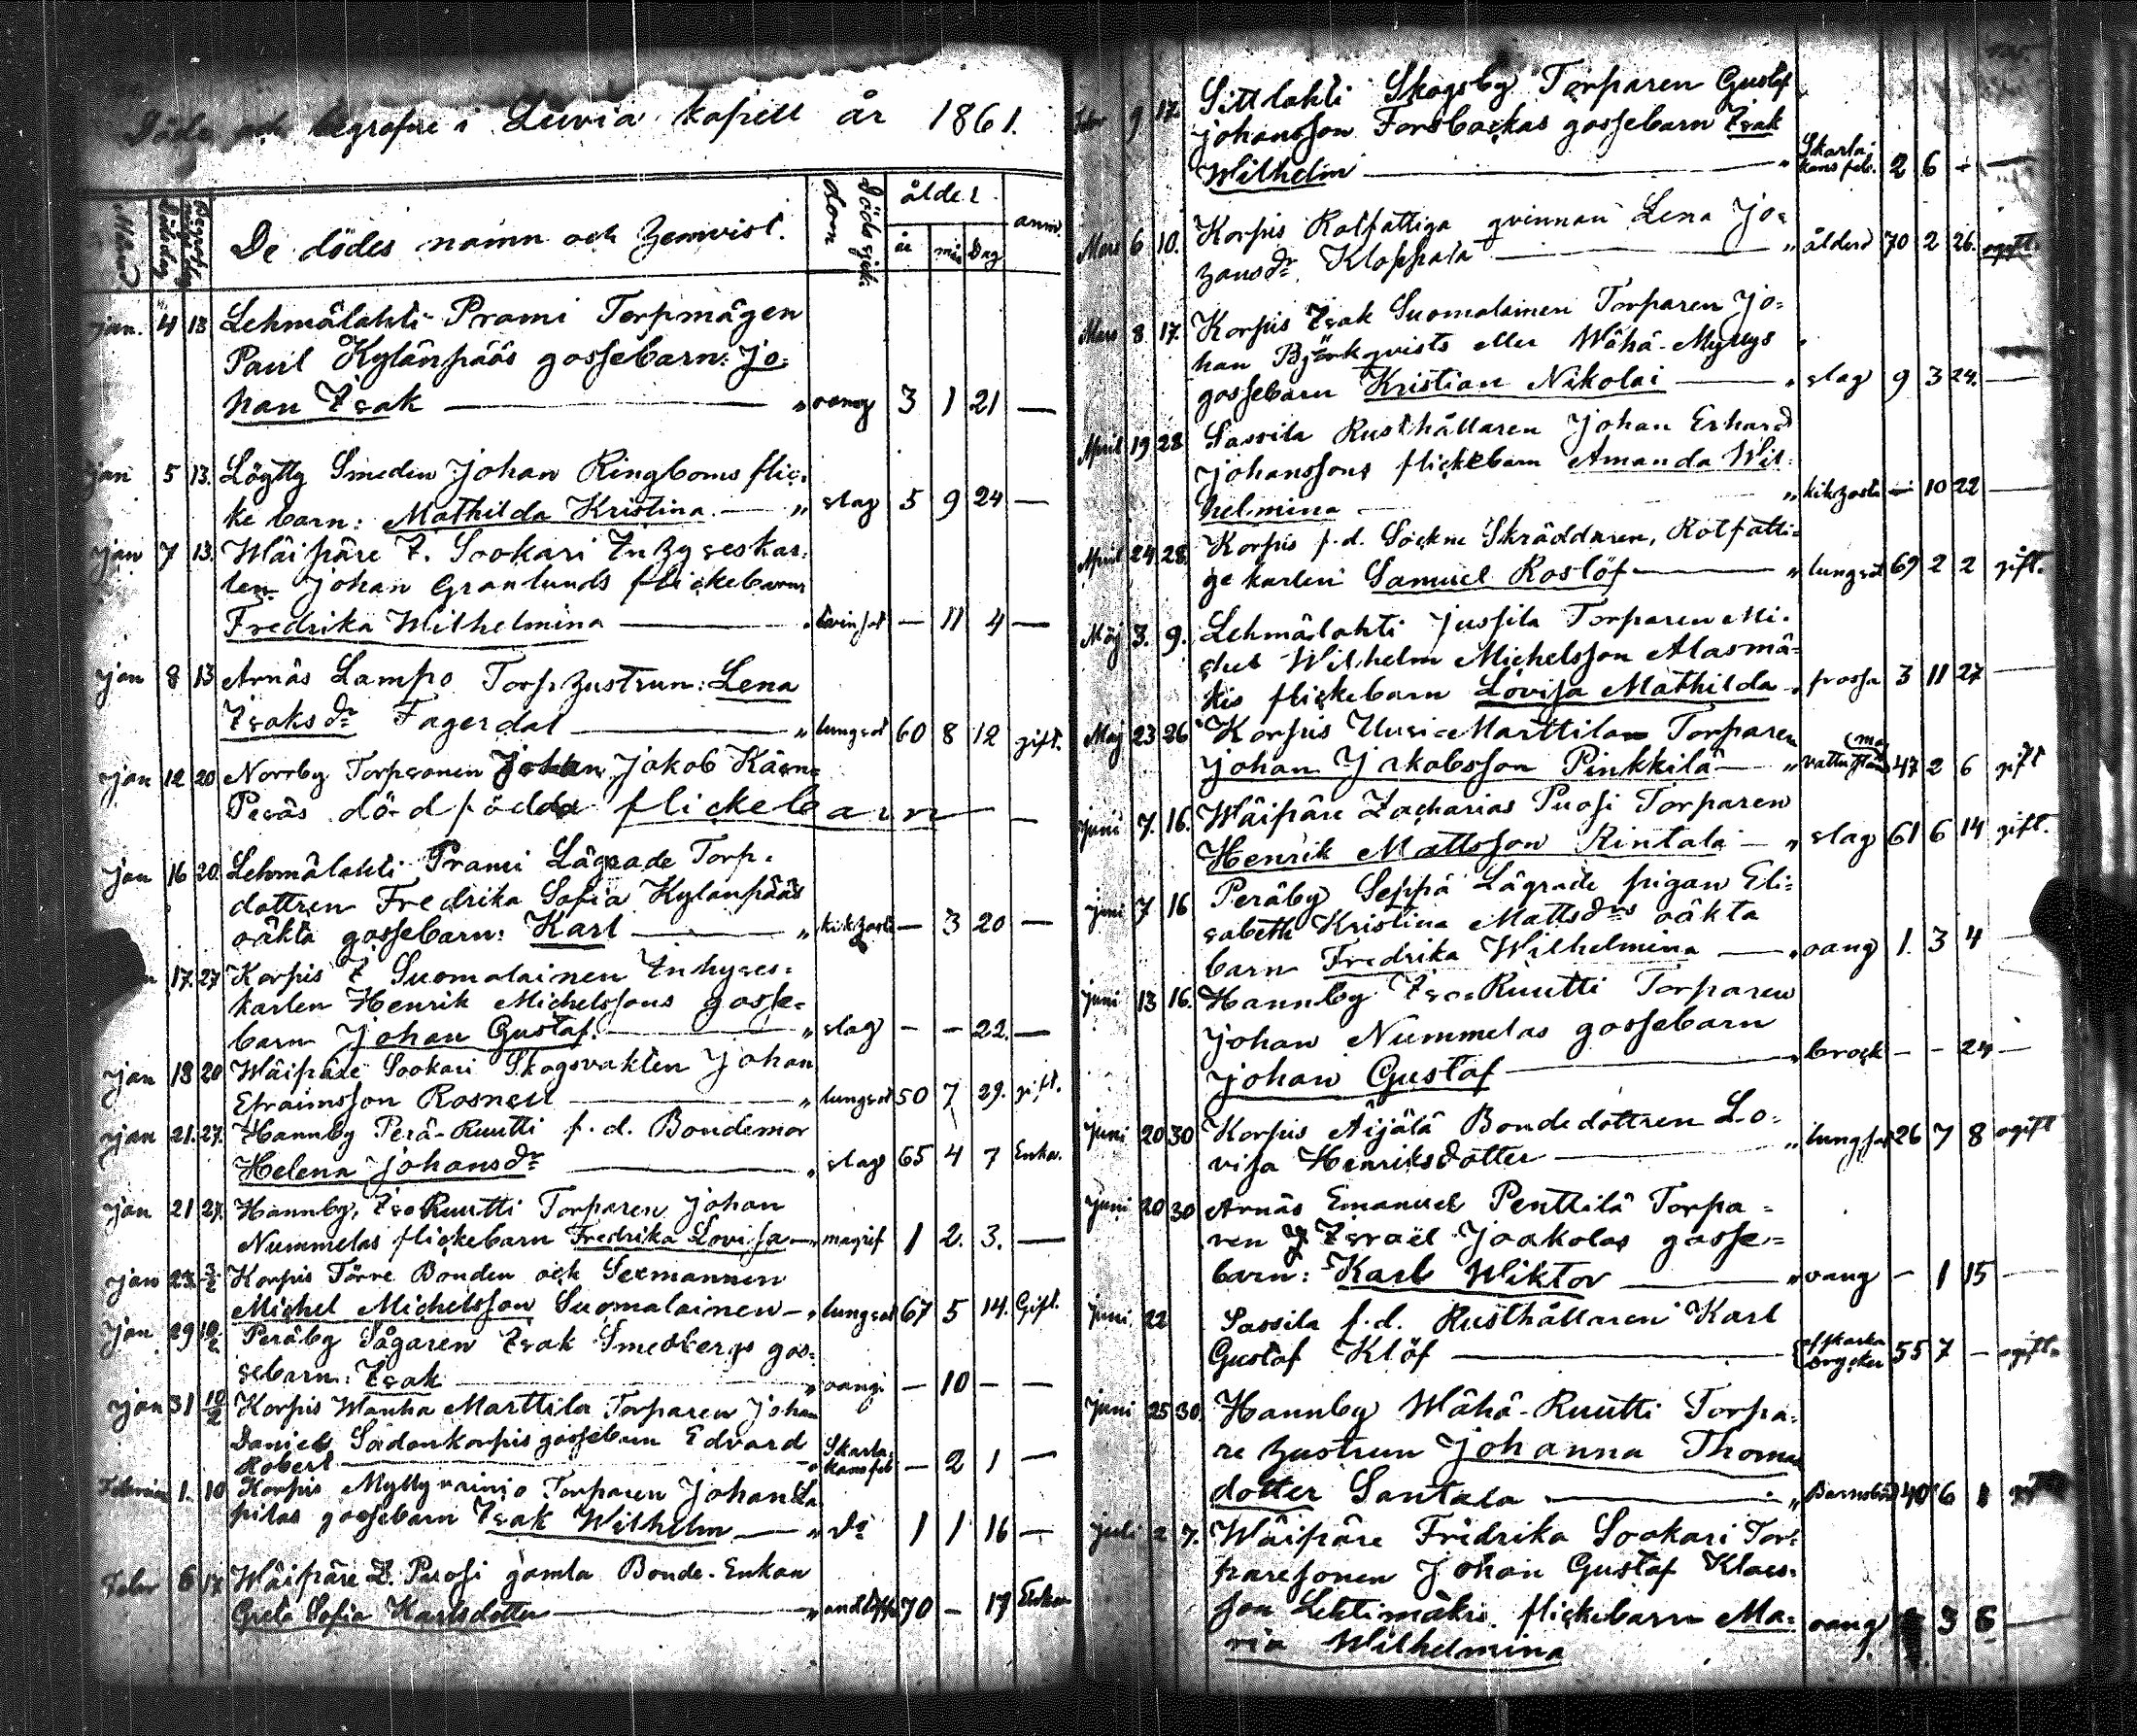 Döde och begrafne i Luvia kapell år 1861.
Månad
Dödsdag
Begrafning
De dödes namn och hemvist.
Dödssjukdom
ålder
år
mån
Dag
anm.
jan. 4 13 Lehmälahti Prami Torpmågen
Paul Kylänpääs gossebarn: Jo-
han Isak — " oang 3 1 21 —
jan 5 13. Lögtty Smeden Johan Ringboms flic-
ke barn: Mathilda Kristina — " slag 5 9 24 —
jan 7 13. Wäipäre I. Sookari Inhyseskar-
len Johan Granlunds flickebarn
Fredrika Wilhelmina — " — 11 4 —
jan 8 13 Arnäs Lampo Torphustrun: Lena
Isaksdr Fagerdal — " lungsot 60 8 12 gift.
jan 12 20 Norrby Torpsonen Jakob Käsne
Peräs dödfödda flickebarn —
jan 16 20. Lehmälahti Prami Lägrade Torp-
dottren Fredrika Sofia Kylänpääs
oäkta gossebarn: Karl — " kikhosta — 3 20 —
17. 27 Korpis I Suomalainen Inhyses-
karlen Henrik Michelssons gosse-
barn Johan Gustaf. — " slag - - 22. —
jan 18 20 Wäipäre Sookari Skogsvakten Johan
Efraimsson Rosnell — " lungsot 50 7 29. gift.
jan 21. 27. Hannby Perä-Ruutti f.d. Bondemor
Helena Johansdr — " slag 65 4 7 Enka.
jan 21 27. Hannby, Iso Ruutti Torparen Johan
Nummelas flickebarn Fredrika Lovisa — " magref 1 2. 3. —
jan 23 3/2 Korpis Törre Bonden och Sexmannen
Michel Michelsson Suomalainen — " lungsot 67 5 14. Gift.
jan 29 10/2 Peräby Sågaren Isak Smedbergs gos-
sebarn: Isak — " oang — 10 — —
jan 31 10/2 Korpis Wanha Marttila Torparen Johan
Daniel Sadankorpis gossebarn Edvard
Robert — " Skarla-
kansfeb — 2 1 —
Februari 1. 10 Korpis Myllyrinjo Torparen Johan La
pilas gossebarn Isak Wilhelm — " do 1 1 16 —
Febr 6 17 Wäipäre I. Puosi gamla Bonde-Enkan
Greta Sofia Karlsdotter — " 70 — 17 Enka
Febr 9 17. Sittlahti Skogsby Torparen Gustaf
Johansson Forsbackas gossebarn Isak
Wilhelm — " Skarla-
kans feb. 2 6 - —
Mars 6 10. Korpis Rotfattiga qvinnan Lena Jo-
hansdr Kloppala — " ålderd 70 2 26. ogift.
Mars 8 17. Korpis Isak Suomalainen Torparen Jo-
han Björkqvists eller Wähä-Myllys
gossebarn Kristian Nikolai — " slag 9 3 24. —
April 19 28 Sassila Rusthållaren Johan Erhard
Johanssons flickebarn Amanda Wil-
helmina — " kikhosta — 10 22 —
April 24 28. Korpis f.d. Sockne Skräddaren, Rotfatti-
ge karlen Samuel Roslöf — " lungsot 69 2 2 gift.
Maj 3. 9. Lehmälahti Jussila Torparen Mi-
chel Wilhelm Michelsson Alasmä-
kis flickebarn Lovisa Mathilda " frossa 3 11 27 —
Maj 23 26 Korpis Uusi-Marttila Torparen
Johan Jakobsson Pinkkilä — " vattusot 47 2 6 gift
Juni 7. 16. Wäipäre Zacharias Puosi Torparen
Henrik Mattsson Rintala — " slag 61 6 14 gift.
juni 7 16 Peräby Seppä Lägrade pigan Eli-
sabeth Kristina Mattsdrs oäkta
barn Fredrika Wilhelmina — " oang 1. 3 4 —
juni 13 16. Hannby Iso-Ruutti Torparen
Johan Nummelas gossebarn
Johan Gustaf — " brock - - 24 —
Juni 20 30 Korpis Äijälä Bondedottren Lo-
visa Henriksdotter — " lungsot 26 7 8 ogift
Juni 20 30 Arnäs Emanuel Penttilä Torpa-
ren Israël Jaakolas gosse-
barn: Karl Wiktor — " oang — 1 15 —
Juni 22 Sassila f.d. Rusthållaren Karl
Gustaf Klöf — starka
drycker 55 7 — ogift.
Juni 25 30. Hannby Wähä-Ruutti Torpa-
re hustrun Johanna Thomas
dotter Santala — " Barnsbörd 40 6 1
Juli 2 7. Wäipäre Fridrika Sookari Tor-
paresonen Johan Gustaf Klaes-
son Lehtimäkis flickebarn Ma-
ria Wilhelmina oang 3 6 —